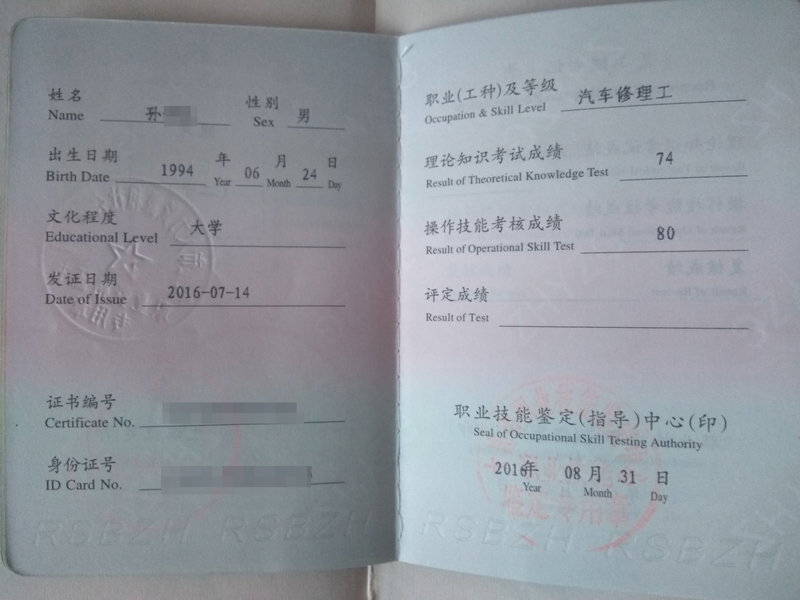 姓名
Name 孙
性别
Sex 男
出生日期
Birth Date 1994 年 Year 06 月 Month 24 日 Day
文化程度
Educational Level 大学
发证日期
Date of Issue 2016-07-14
证书编号
Certificate No.
身份证号
ID Card No.
RSBZH RSBZH
职业(工种)及等级 汽车修理工
Occupation & Skill Level
理论知识考试成绩 74
Result of Theoretical Knowledge Test
操作技能考核成绩 80
Result of Operational Skill Test
评定成绩
Result of Test
职业技能鉴定(指导)中心(印)
Seal of Occupational Skill Testing Authority
2016年 08月 31日
Year Month Day
RSBZH RSBZH